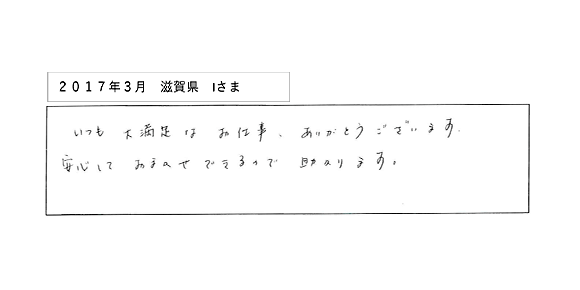 ２０１７年３月　滋賀県　Iさま
いつも 大満足な お仕事、ありがとうございます。
安心して おまかせできるので 助かります。